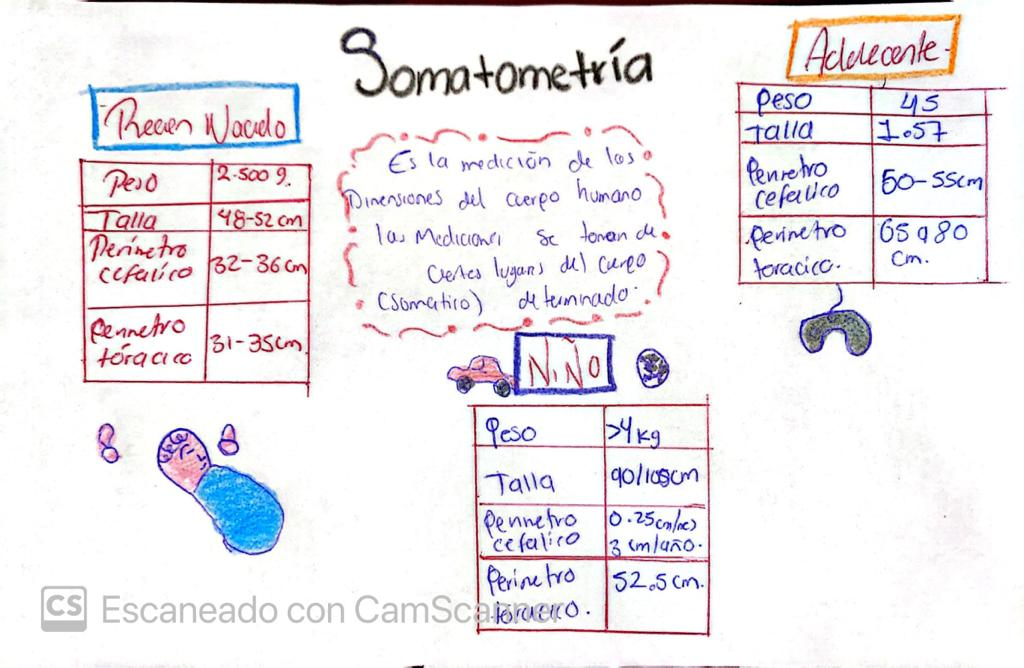 Somatometría
Recien Nacido
Peso 2.500 g.
Talla 48-52 cm
Perimetro
cefalico 32-36 cm
Perimetro
tóracico 31-35 cm
Es la medición de los
Dimensiones del cuerpo humano
las Mediciones se toman de
Ciertos lugares del cuerpo
(somatico) determinado.
Adolecente
Peso 45
Talla 1.57
Perimetro
cefalico 50-55cm
Perimetro 65 a 80
toracico. cm.
NIÑO
Peso >4 kg
Talla 90/ cm
Perimetro 0.25 cm/
cefalico 3 cm/año.
Perimetro 52.5 cm.
toracico.
CS Escaneado con CamScanner